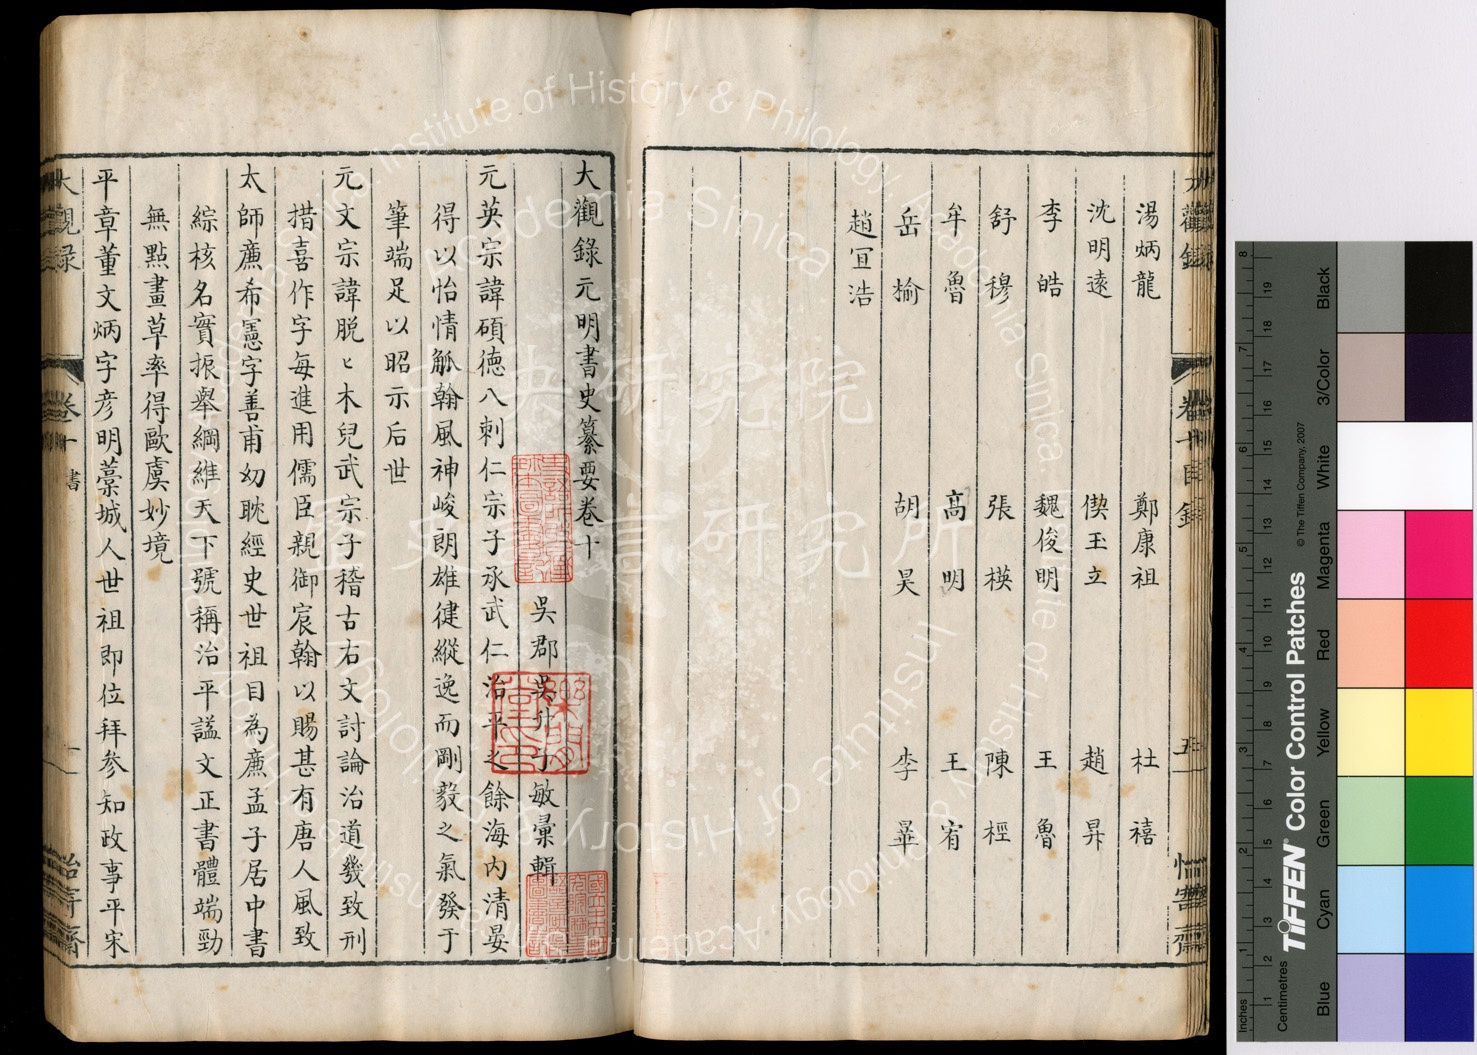 湯炳龍 鄭康祖 杜禧
沈明遠 偰玉立 趙昇
李皓 魏俊明 王魯
舒穆 張模 陳桱
牟魯 高明 王宥
岳榆 胡昊 李曄
趙宜浩
大觀錄元明書史纂要卷十
吳郡吳升子敏彙輯
元英宗諱碩德八剌仁宗子承武仁治平之餘海內清晏
得以怡情觚翰風神峻朗雄健縱逸而剛毅之氣發于
筆端足以昭示后世
元文宗諱脱匕木兒武宗子稽古右文討論治道幾致刑
措喜作字每進用儒臣親御宸翰以賜甚有唐人風致
太師廉希憲字善甫幼耽經史世祖目為廉孟子居中書
綜核名實振舉綱維天下號稱治平諡文正書體端勁
無點畫草率得歐虞妙境
平章董文炳字彥明藁城人世祖即位拜參知政事平宋
大觀錄 卷十 書
Institute of History & Philology, Academia Sinica
中央研究院
歷史語言研究所
Black
3/Color
White
Magenta
Red
Yellow
Green
Cyan
Blue
© The Tiffen Company, 2007
TIFFEN® Color Control Patches
Centimetres
Inches